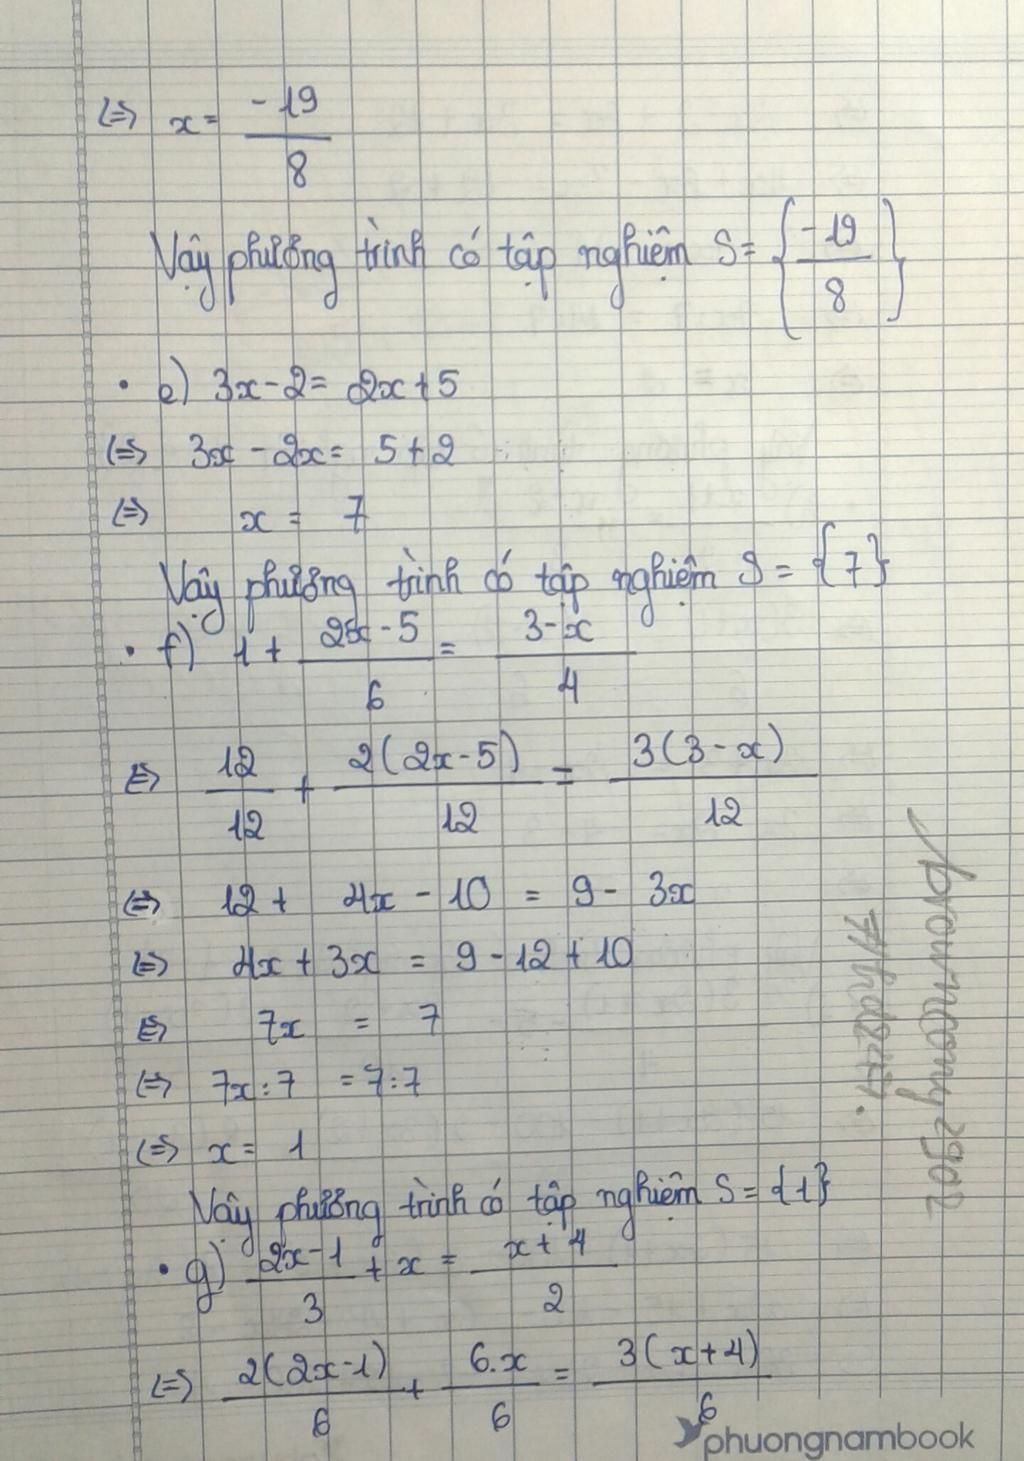 <=> x = -19/8
Vậy phương trình có tập nghiệm S = {-19/8}
• e) 3x - 2 = 2x + 5
<=> 3x - 2x = 5 + 2
<=> x = 7
Vậy phương trình có tập nghiệm S = {7}
• f) 1 + (2x - 5)/6 = (3 - x)/4
<=> 12/12 + 2(2x - 5)/12 = 3(3 - x)/12
<=> 12 + 4x - 10 = 9 - 3x
<=> 4x + 3x = 9 - 12 + 10
<=> 7x = 7
<=> 7x : 7 = 7 : 7
<=> x = 1
Vậy phương trình có tập nghiệm S = {1}
• g) (2x - 1)/3 + x = (x + 4)/2
<=> 2(2x - 1)/6 + 6.x/6 = 3(x + 4)/6
phuongnambook